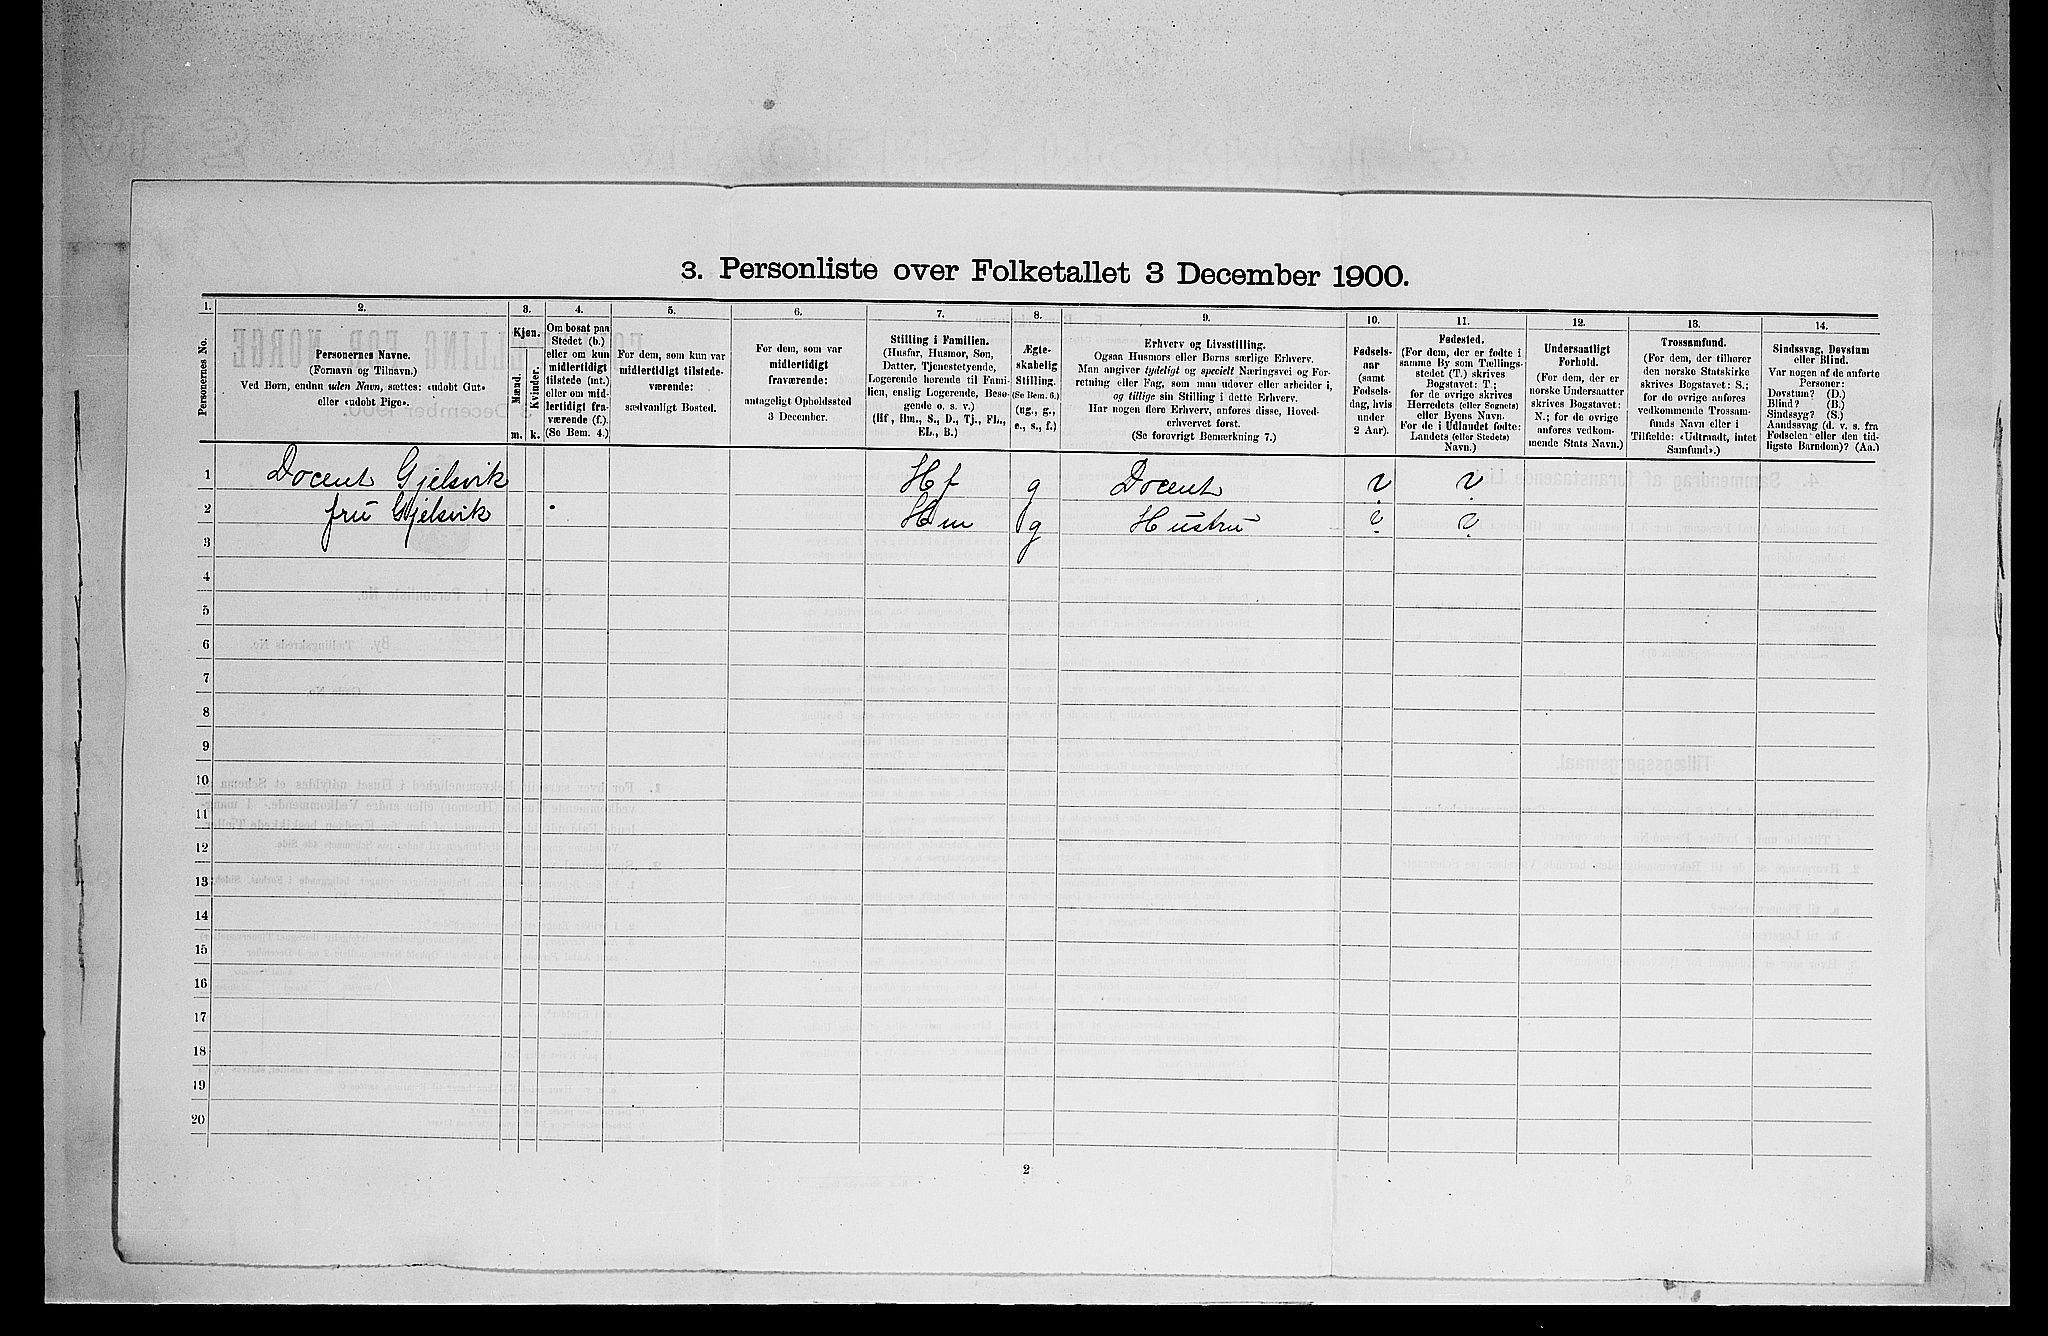 3. Personliste over Folketallet 3 December 1900.
1. 2. 3. 4. 5. 6. 7. 8. 9. 10. 11. 12. 13. 14.
Personernes No.
Personernes Navne.
(Fornavn og Tilnavn.)
Ved Børn, endnu uden Navn, sættes: «udøbt Gut»
eller «udøbt Pige».
Kjøn.
Mænd.
Kvinder.
m. k.
Om bosat paa
Stedet (b.)
eller om kun
midlertidigt
tilstede (mt.)
eller om mid-
lertidigt fra-
værende (f.).
(Se Bem. 4.)
For dem, som kun var
midlertidigt tilstede-
værende:
sædvanligt Bosted.
For dem, som var
midlertidigt
fraværende:
antageligt Opholdssted
3 December.
Stilling i Familien.
(Husfar, Husmor, Søn,
Datter, Tjenestetyende,
Logerende hørende til Fami-
lien, enslig Logerende, Besø-
gende o. s. v.)
(Hf., Hm., S., D., Tj., FL.,
EL., B.)
Ægte-
skabelig
Stilling.
(Se Bem. 6.)
(ug., g.,
e., s., f.)
Erhverv og Livsstilling.
Ogsaa Husmors eller Børns særlige Erhverv.
Man angiver tydeligt og specielt Næringsvei og For-
retning eller Fag, som man udøver eller arbeider i,
og tillige sin Stilling i dette Erhverv.
Har nogen flere Erhverv, anføres disse, Hoved-
erhvervet først.
(Se forøvrigt Bemærkning 7.)
Fødsels-
aar
(samt
Fødsels-
dag, hvis
under
2 Aar).
Fødested.
(For dem, der er fødte i
samme By som Tællings-
stedet (T.) skrives
Bogstavet: T.;
for de øvrige skrives
Herredets (eller Sognets)
eller Byens Navn.
For de i Udlandet fødte:
Landets (eller Stedets)
Navn.)
Undersaatligt
Forhold.
(For dem, der er
norske Undersaatter
skrives Bogstavet:
N.; for de øvrige
anføres vedkom-
mende Stats Navn.)
Trossamfund.
(For dem, der tilhører
den norske Statskirke
skrives Bogstavet: S.;
for de øvrige anføres
vedkommende Trossam-
funds Navn eller i
Tilfælde: «Udtraadt, intet
Samfund».)
Sindssvag, Døvstum
eller Blind.
Var nogen af de anførte
Personer:
Døvstum? (D.)
Blind? (B.)
Sindssyg? (S.)
Aandssvag (d. v. s. fra
Fødselen eller den tid-
ligste Barndom)? (Aa.)
1 Docent Gjelsvik Hf g Docent ? ?
2 fru Gjelsvik Hm g Hustru ? ?
3
4
5
6
7
8
9
10
11
12
13
14
15
16
17
18
19
20
2